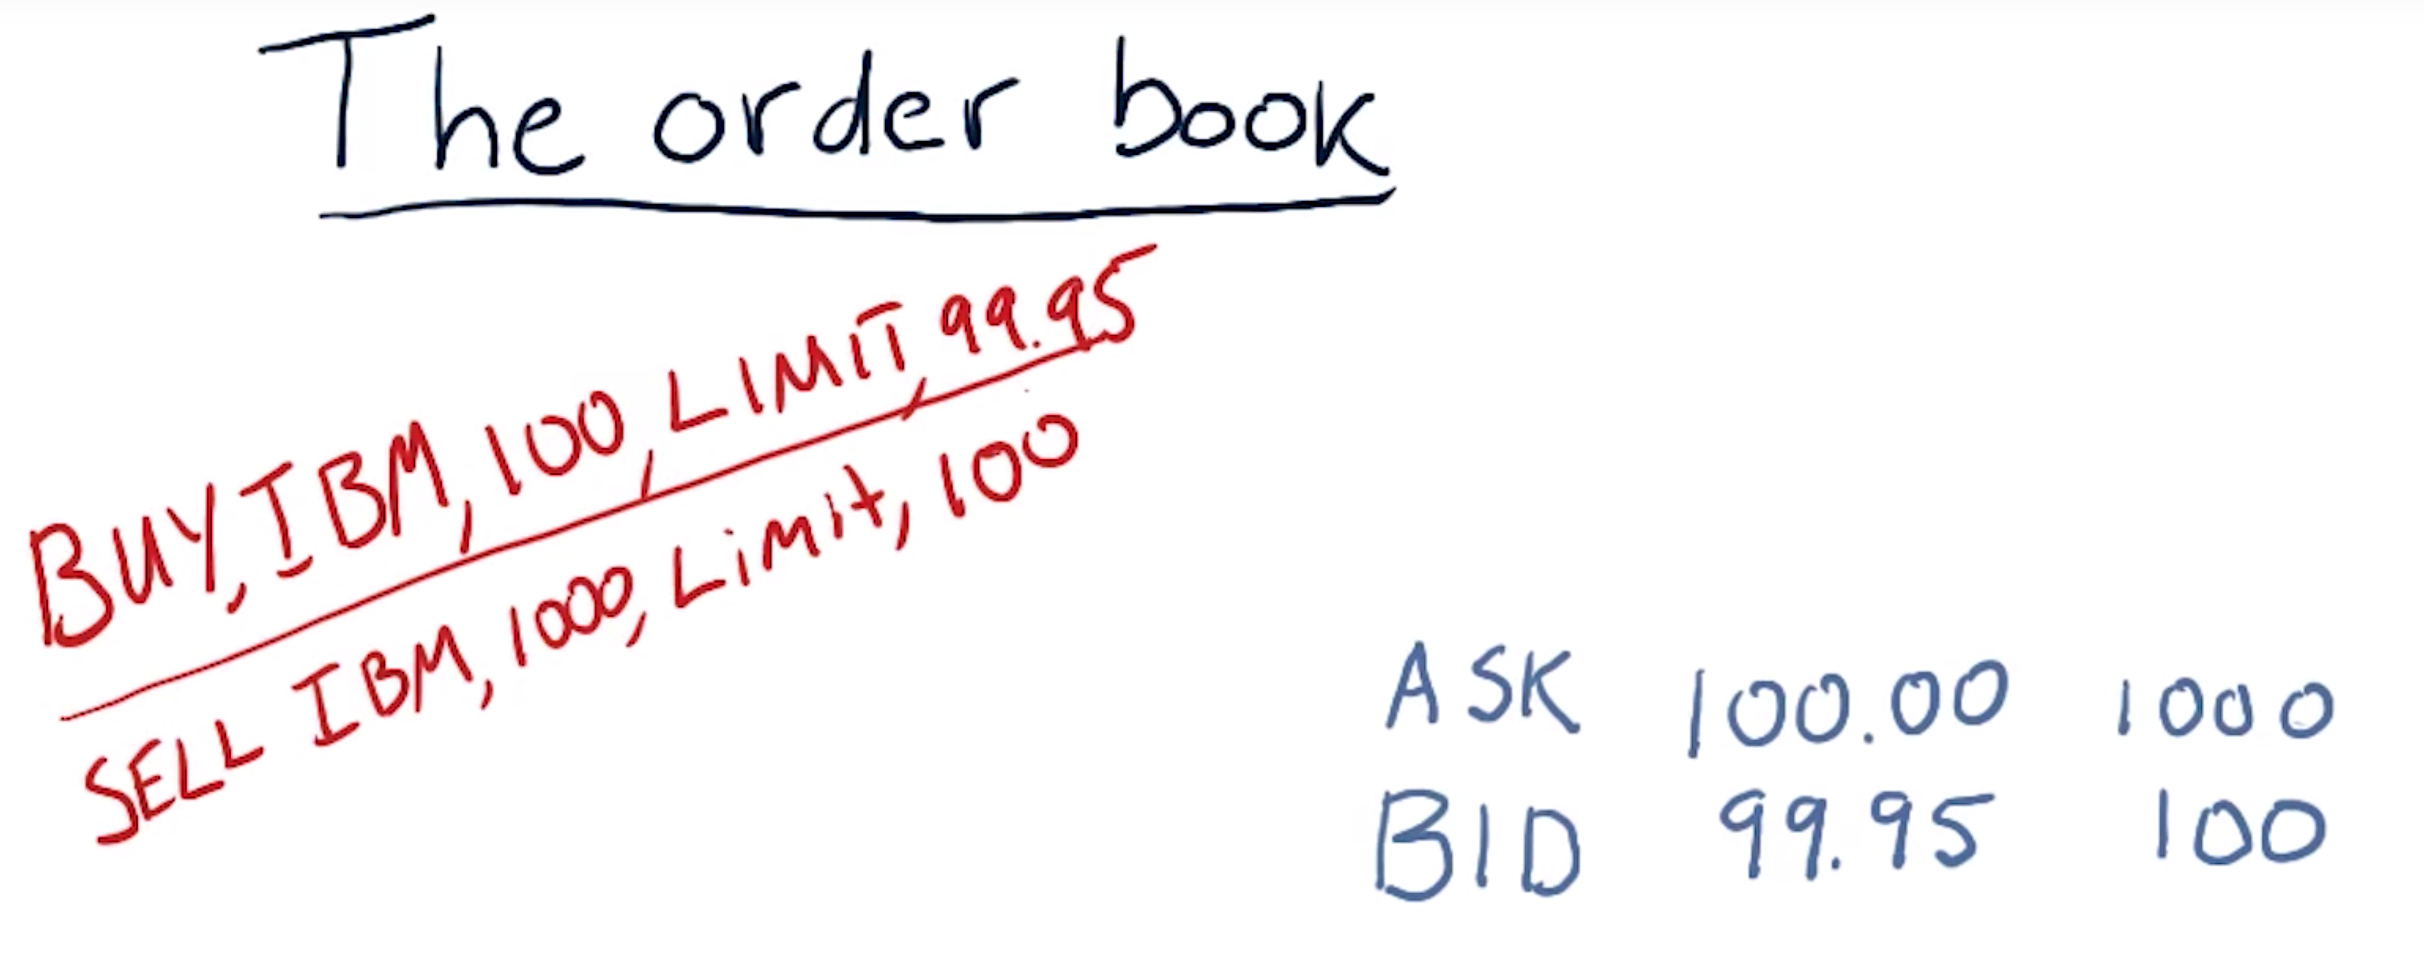 The order book
BUY, IBM, 100, LIMIT, 99.95
SELL IBM, 1000, Limit, 100
ASK 100.00 1000
BID 99.95 100